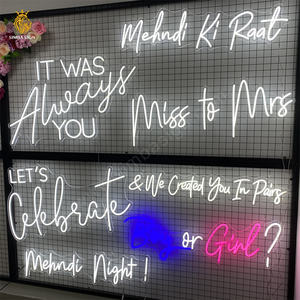 SIMBA SIGN
Mehndi Ki Raat
IT WAS
Always
YOU
Miss to Mrs
LET'S
Celebrate
& We Created You In Pairs
or Girl?
Mehndi Night!